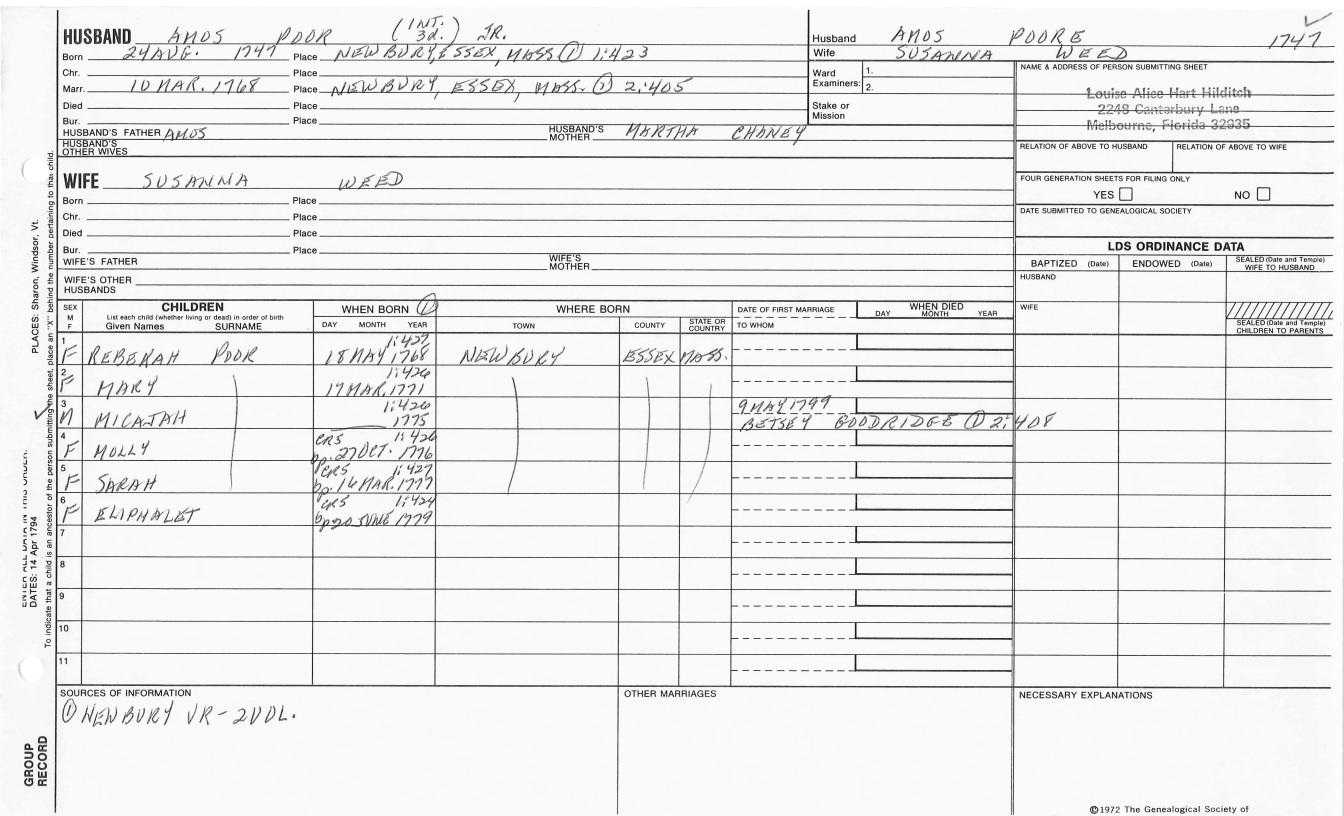 HUSBAND AMOS POOR (INT. 3d.) JR.
Born 24 AUG. 1747 Place NEWBURY, ESSEX, MASS ① 1:423
Chr. Place
Marr. 10 MAR. 1768 Place NEWBURY, ESSEX, MASS. ① 2:405
Died Place
Bur. Place
HUSBAND'S FATHER AMOS HUSBAND'S MOTHER MARTHA CHANEY
HUSBAND'S OTHER WIVES
Husband AMOS POORE 1747
Wife SUSANNA WEED
Ward Examiners: 1.
2.
Stake or Mission
NAME & ADDRESS OF PERSON SUBMITTING SHEET
Louise Alice Hart Hilditch
2248 Canterbury Lane
Melbourne, Florida 32935
RELATION OF ABOVE TO HUSBAND RELATION OF ABOVE TO WIFE
FOUR GENERATION SHEETS FOR FILING ONLY
YES NO
DATE SUBMITTED TO GENEALOGICAL SOCIETY
WIFE SUSANNA WEED
Born Place
Chr. Place
Died Place
Bur. Place
WIFE'S FATHER WIFE'S MOTHER
WIFE'S OTHER HUSBANDS
LDS ORDINANCE DATA
BAPTIZED (Date) ENDOWED (Date) SEALED (Date and Temple) WIFE TO HUSBAND
HUSBAND
WIFE
SEALED (Date and Temple) CHILDREN TO PARENTS
SEX M F
CHILDREN
List each child (whether living or dead) in order of birth
Given Names SURNAME
WHEN BORN ①
DAY MONTH YEAR
WHERE BORN
TOWN COUNTY STATE OR COUNTRY
DATE OF FIRST MARRIAGE
TO WHOM
WHEN DIED
DAY MONTH YEAR
1 1:427
F REBERAH POOR 18 MAY 1768 NEWBURY ESSEX MASS.
2 1:426
F MARY 17 MAR. 1771
3 1:426 9 MAY 1799
M MICAJAH 1775 BETSEY GOODRIDGE ① 2:408
4 CRS 1:426
F MOLLY bp. 27 OCT. 1776
5 CRS 1:427
F SARAH bp. 16 MAR. 1777
6 CRS 1:424
F ELIPHALET bp 20 JUNE 1779
7
8
9
10
11
SOURCES OF INFORMATION
① NEWBURY VR - 2VOL.
OTHER MARRIAGES
NECESSARY EXPLANATIONS
©1972 The Genealogical Society of
PLACES: Sharon, Windsor, Vt.
ENTER ALL DATA IN THIS ORDER.
DATES: 14 Apr 1794
To indicate that a child is an ancestor of the person submitting the sheet, place an "X" behind the number pertaining to that child.
GROUP
RECORD